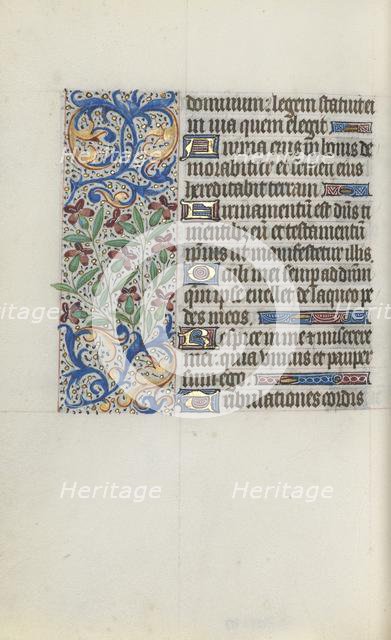 dominum: legem statuit ei
in via quem elegit
Anima eius in bonis de
morabitur et semen eius
hereditabit terram
Firmamentū est dūs ti
mentibꝰ eū et testamentum
ipsius ut manifestetur illis
Oculi mei semp ad dūm
qm ipse evellet de laqueo pe
des meos
Respice in me et miserere
mei: quia unicus et pauper
sum ego
Tribulationes cordis
Heritage Heritage
Heritage Heritage
Heritage Heritage